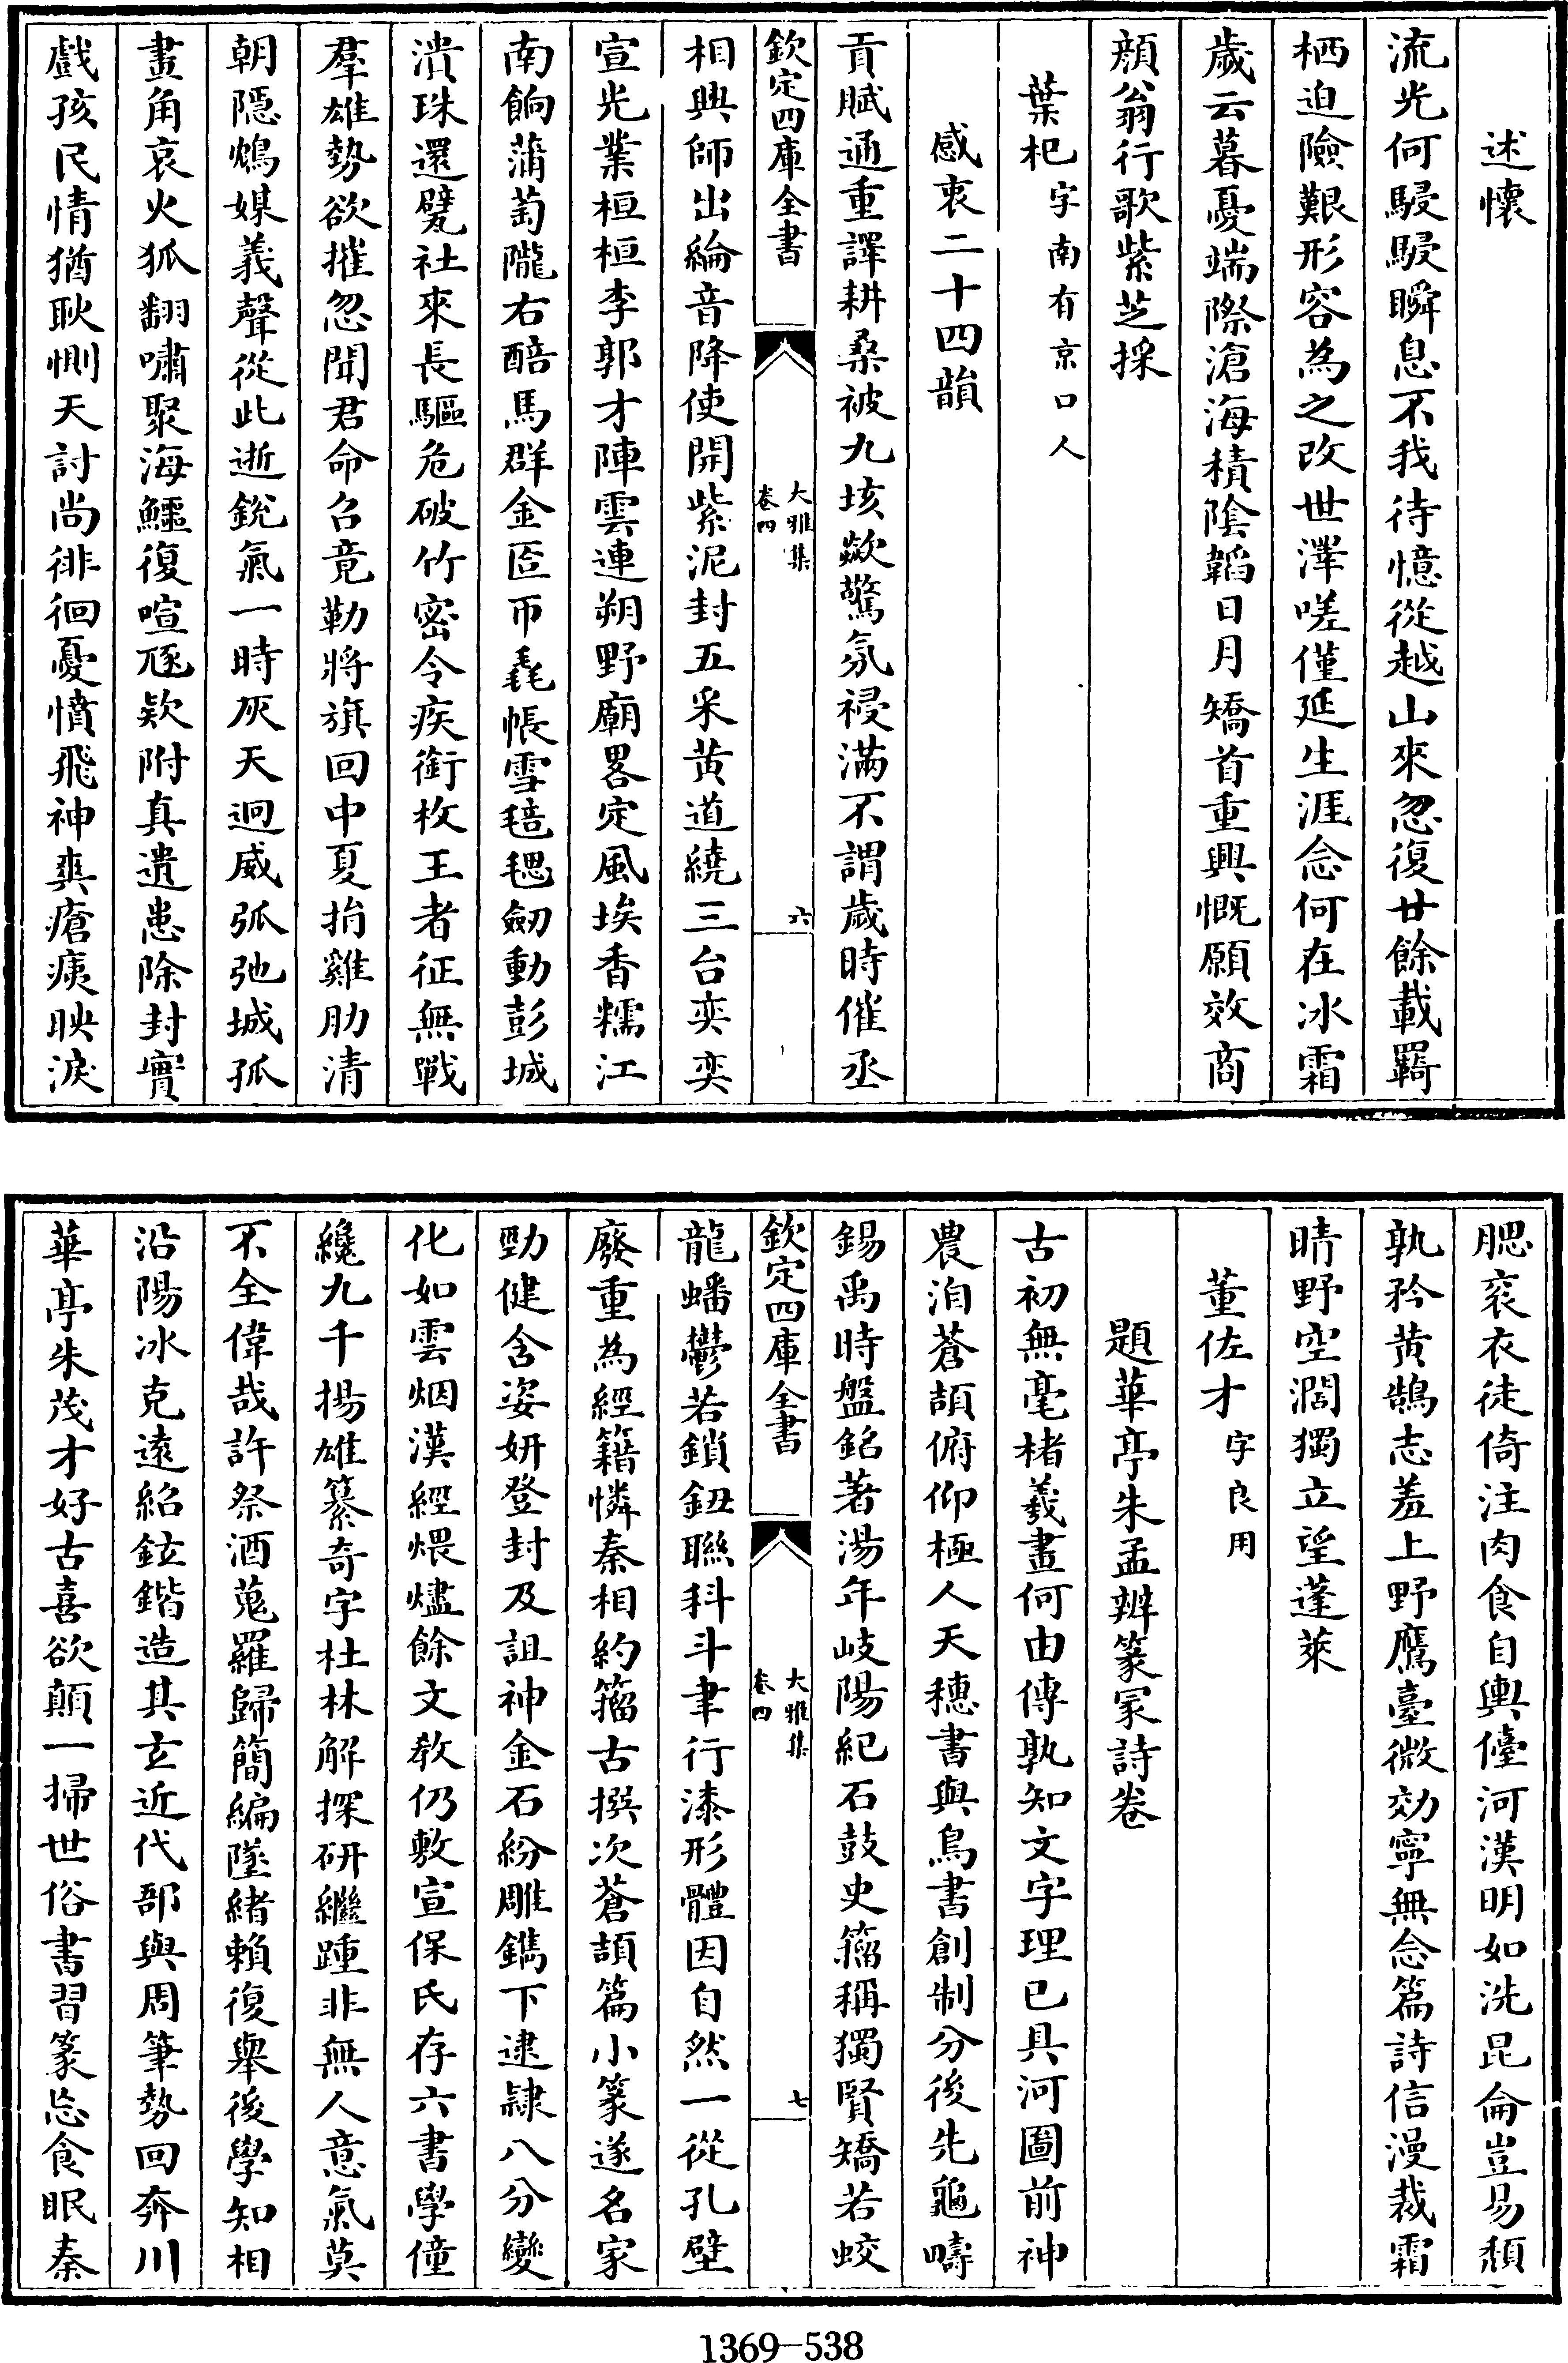 述懷
流光何駸駸瞬息不我待憶從越山來忽復廿餘載羇
栖迫險艱形容為之改世澤嗟僅延生涯念何在冰霜
歲云暮憂端際滄海積陰韜日月矯首重興慨願效商
顏翁行歌紫芝採
葉杞字南有京口人
感衷二十四韻
貢賦通重譯耕桑被九垓歘驚氛祲滿不謂歲時催丞
欽定四庫全書
大雅集
卷四
六
相興師出綸音降使開紫泥封五采黄道繞三台奕奕
宣光業桓桓李郭才陣雲連朔野廟畧定風埃香糯江
南餉蒲萄隴右醅馬群金匼帀毳帳雪毰毸劒動彭城
潰珠還甓社來長驅危破竹密令疾銜枚王者征無戰
羣雄勢欲摧忽聞君命召竟勒將旗回中夏捐雞肋清
朝隠鴆媒義聲從此逝銳氣一時灰天迥威弧弛城孤
畫角哀火狐翻嘯聚海鱷復喧豗欵附真遺患除封實
戲孩民情猶耿惻天討尚徘徊憂憤飛神爽瘡痍映淚
腮衮衣徒倚注肉食自輿儓河漢明如洗昆侖豈易頽
孰矜黄鵠志羞上野鷹臺微効寧無念篇詩信漫裁霜
晴野空濶獨立望蓬萊
董佐才字良用
題華亭朱孟辨篆冡詩卷
古初無毫楮羲畫何由傳孰知文字理已具河圖前神
農洎蒼頡俯仰極人天穗書與鳥書創制分後先龜疇
錫禹時盤銘著湯年岐陽紀石鼓史籀稱獨賢矯若蛟
欽定四庫全書
大雅集
卷四
七
龍蟠鬱若鎖鈕聯科斗聿行漆形體因自然一從孔壁
廢重為經籍憐秦相約籀古撰次蒼頡篇小篆遂名家
勁健含姿妍登封及詛神金石紛雕鐫下逮隷八分變
化如雲烟漢經煨燼餘文教仍敷宣保氏存六書學僮
纔九千揚雄纂奇字杜林解探研繼踵非無人意氣莫
不全偉哉許祭酒蒐羅歸簡編墜緒賴復舉後學知相
沿陽冰克遠紹鉉鍇造其玄近代郚與周筆勢回奔川
華亭朱茂才好古喜欲顛一掃世俗書習篆忘食眠秦
1369-538